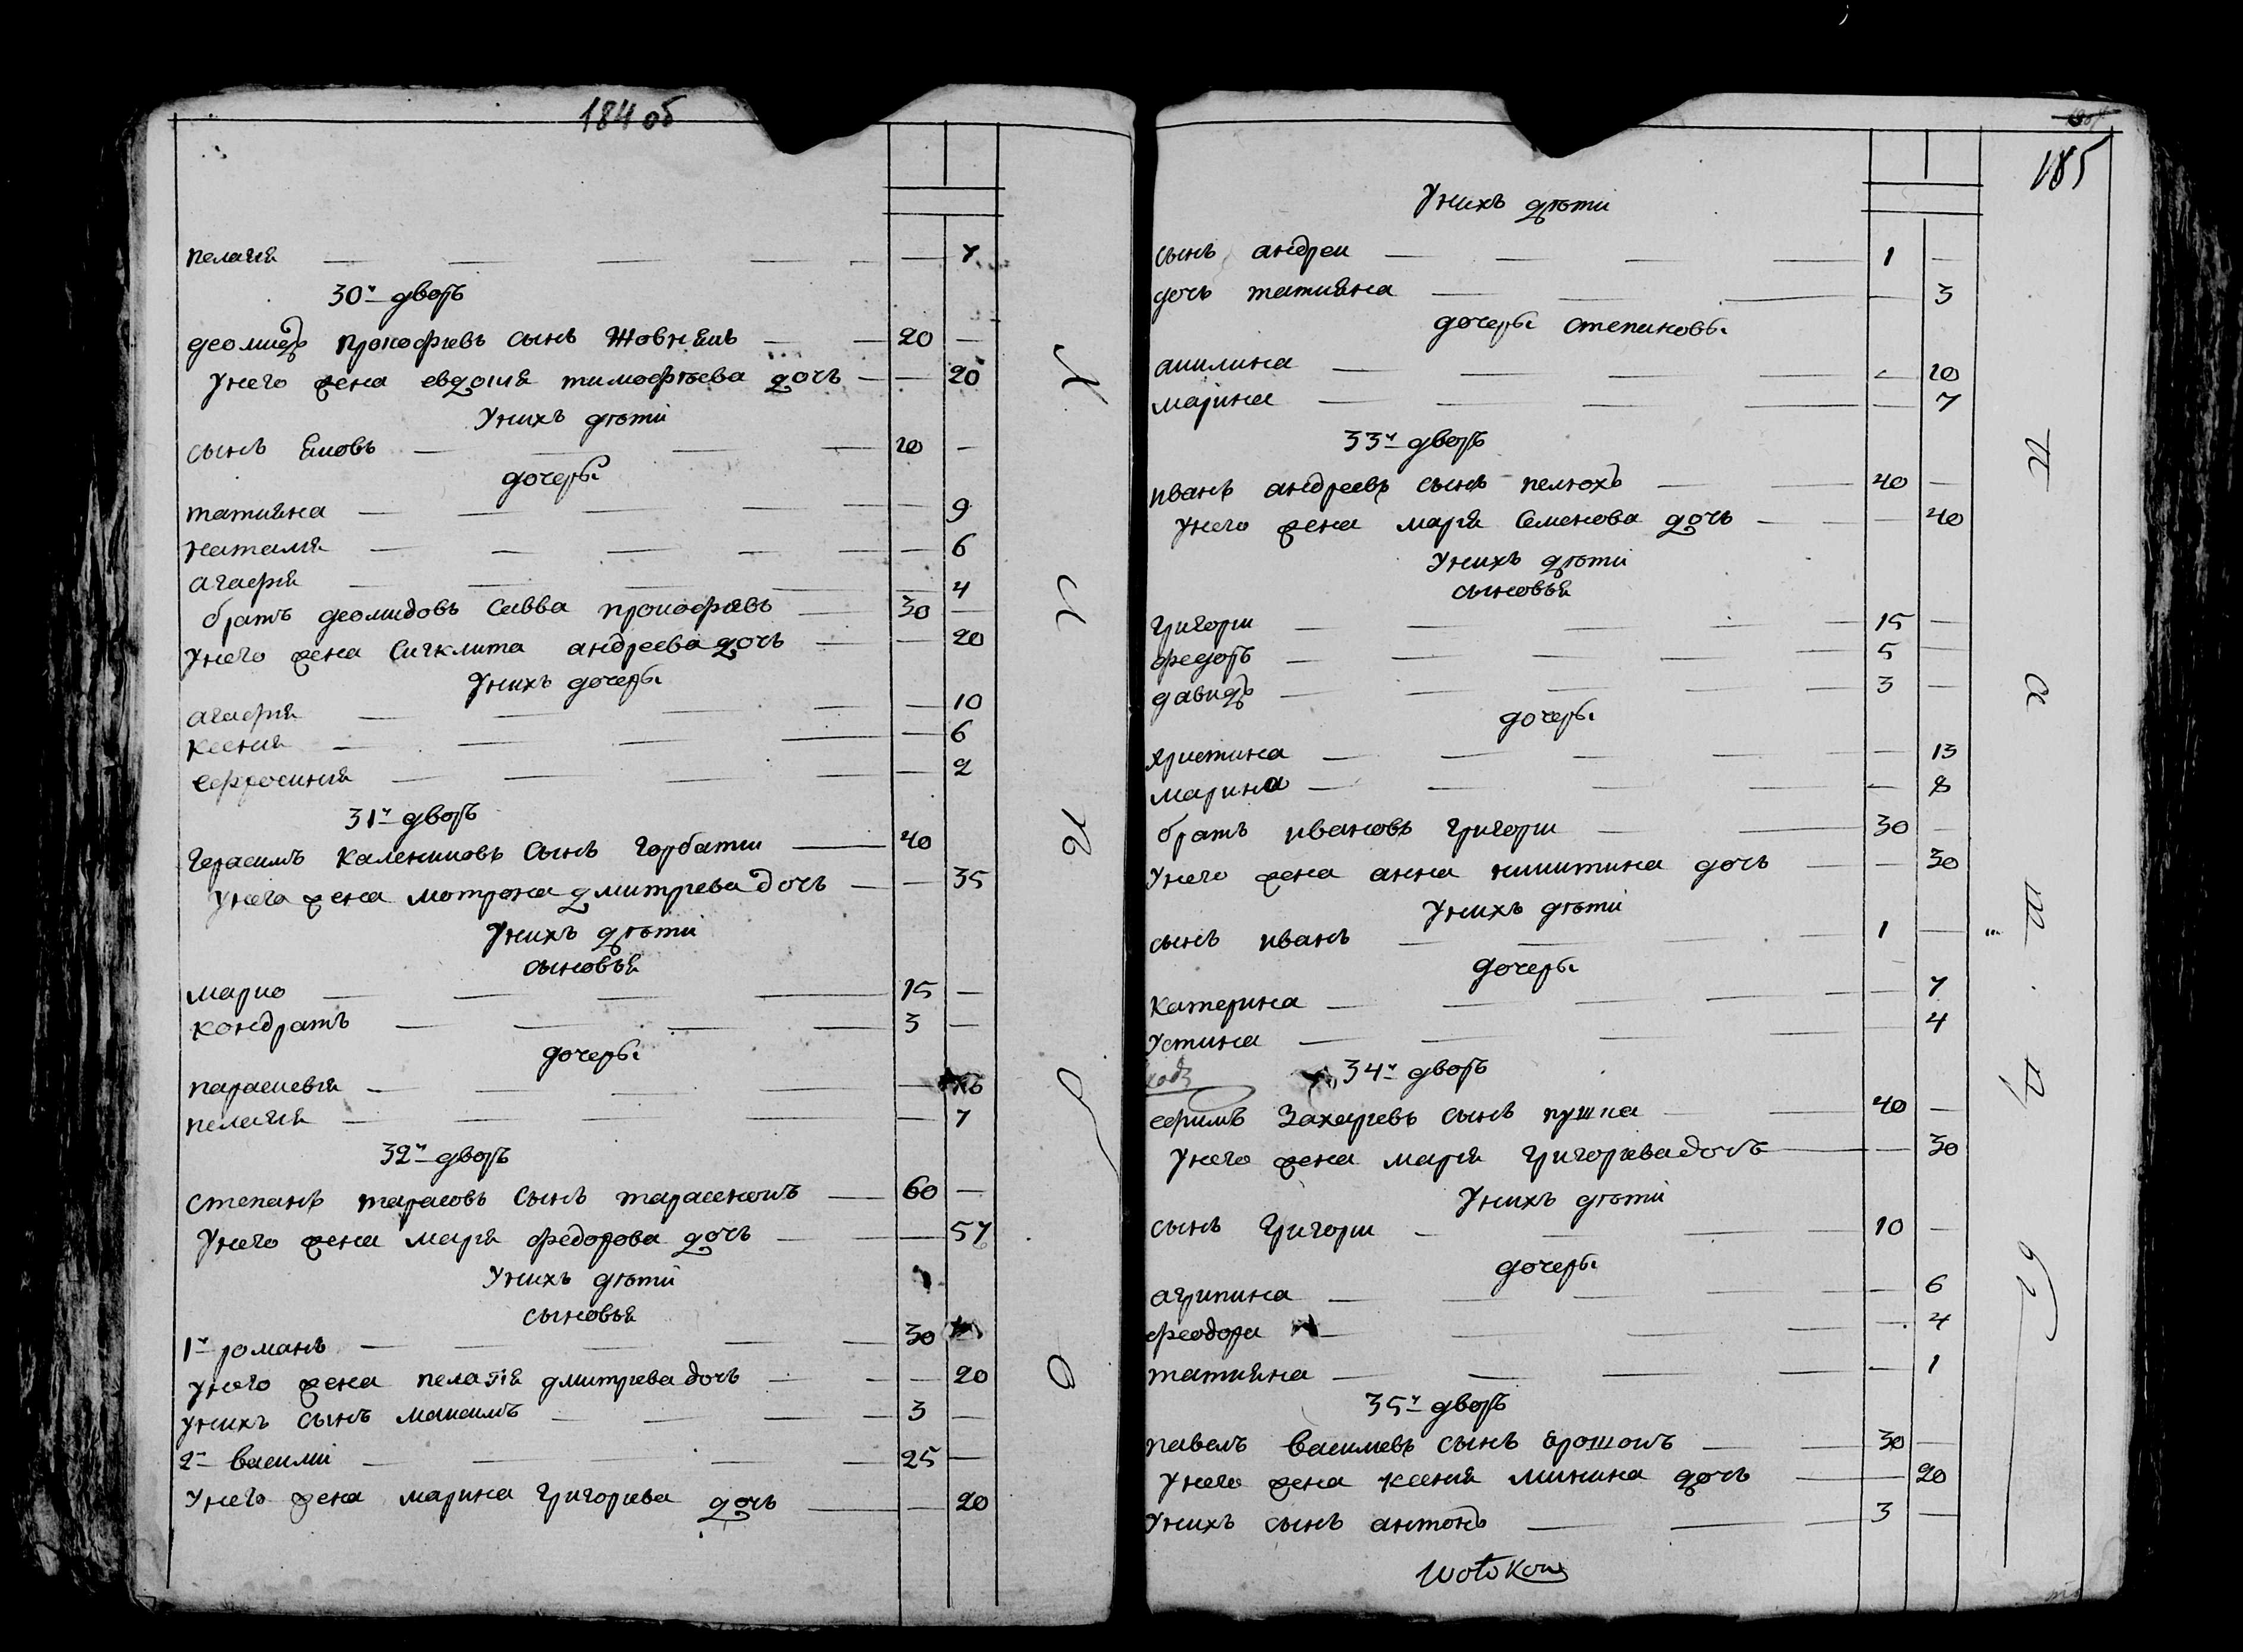 184 об
пелагия — 7
30й дворъ
деомидъ прокофиевъ сынъ жовнѣшъ 20 —
У него жена евдокия тимофѣева дочь — 20
У нихъ дѣти
сынъ Яковъ 10 —
дочеры
татияна — 9
наталия — 6
агафия — 4
братъ деомидовъ Савва прокофиевъ 30 —
У него жена Сигклита андреева дочь — 20
У нихъ дочеры
агафия — 10
ксения — 6
Ефросиния — 2
31й дворъ
Герасимъ калениковъ Сынъ горбатии 40
У него жена мотрона дмитриева дочь — 35
У нихъ дѣти
сыновья
марко 15 —
кондратъ 3 —
дочеры
параскевия —
пелагия — 7
32й дворъ
степанъ тарасовъ Сынъ тарасенокъ 60 —
У него жена мария федорова дочь — 57
У нихъ дѣти
сыновья
1й романъ 30
У него жена пелагия дмитриева дочь — 20
У нихъ сынъ максимъ 3 —
2й василии 25 —
У него жена марина григориева дочь — 20
185
У нихъ дѣти
сынъ андреи 1 —
дочь татияна — 3
дочеры степановы
акилина — 10
марина — 7
33й дворъ
иванъ андреевъ сынъ пелюхъ 40 —
У него жена мария Семенова дочь — 40
У нихъ дѣти
сыновья
григории 15 —
федоръ 5 —
давидъ 3 —
дочеры
христина — 13
марина — 8
братъ ивановъ григории 30 —
У него жена анна никитина дочь — 30
У нихъ дѣти
сынъ иванъ 1 —
дочеры
катерина — 7
устина — 4
34й дворъ
ефимъ Захариевъ сынъ пушка 40 —
У него жена мария григориева дочь — 30
У нихъ дѣти
сынъ григории 10 —
дочеры
агрипина — 6
феодора — 4
татияна — 1
35й дворъ
павелъ василиевъ сынъ Ярошокъ 30 —
У него жена ксения минина дочь — 20
У нихъ сынъ антонъ 3 —